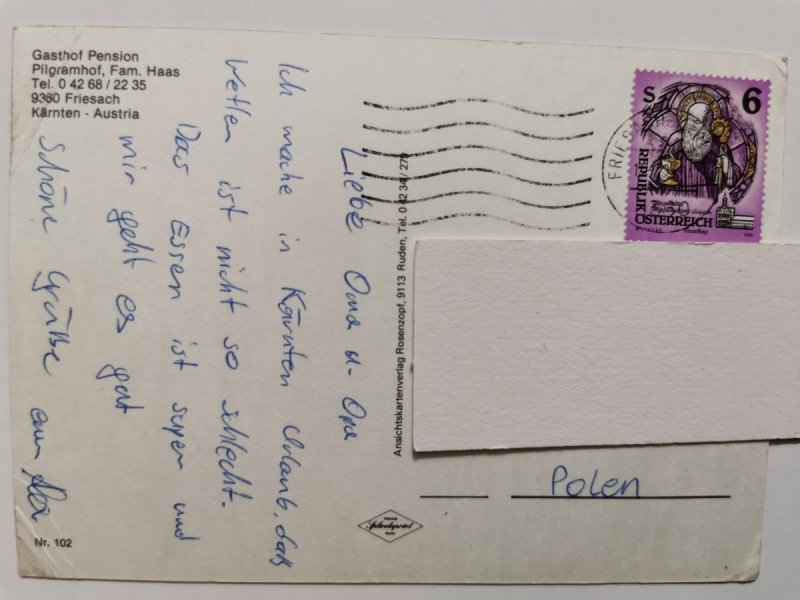 Gasthof Pension
Pilgramhof, Fam. Haas
Tel. 0 42 68 / 22 35
9360 Friesach
Kärnten - Austria
Liebe Oma u. Opa
Ich mache in Kärnten Urlaub, daß
Wetter ist nicht so schlecht.
Das Essen ist super und
mir geht es gut
Schöne Grüße
Nr. 102
Ansichtskartenverlag Rosenzopf, 9113 Ruden, Tel. 0 42 34 / 279
S 6
REPUBLIK
ÖSTERREICH
FRIES
Polen